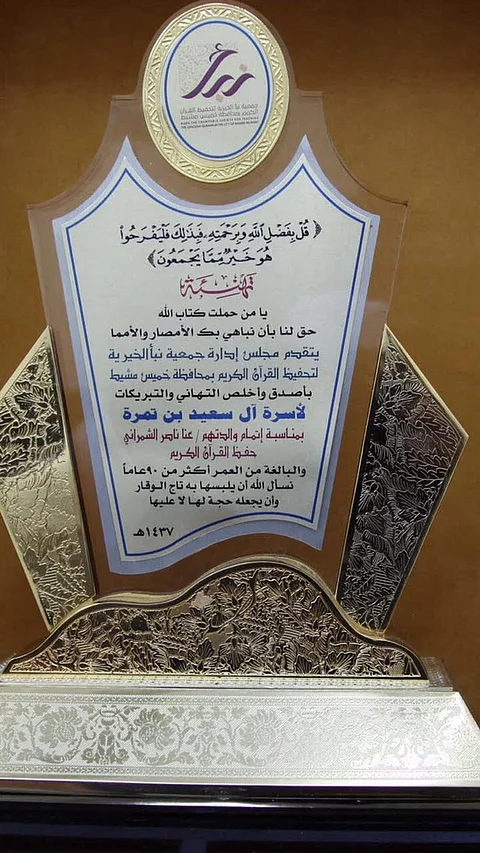 نبأ
جمعية نبأ الخيرية لتحفيظ القرآن
الكريم بمحافظة خميس مشيط
﴿قُلْ بِفَضْلِ اللَّهِ وَبِرَحْمَتِهِ فَبِذَلِكَ فَلْيَفْرَحُوا
هُوَ خَيْرٌ مِمَّا يَجْمَعُونَ﴾
تهنئة
يا من حملت كتاب الله
حق لنا بأن نباهي بك الأمصار والأمما
يتقدم مجلس إدارة جمعية نبأ الخيرية
لتحفيظ القرآن الكريم بمحافظة خميس مشيط
بأصدق وأخلص التهاني والتبريكات
لأسرة آل سعيد بن نمرة
بمناسبة إتمام والدتهم / عنا ناصر الشمراني
حفظ القرآن الكريم
والبالغة من العمر أكثر من ٩٠ عاماً
نسأل الله أن يلبسها به تاج الوقار
وأن يجعله حجة لها لا عليها
١٤٣٧هـ